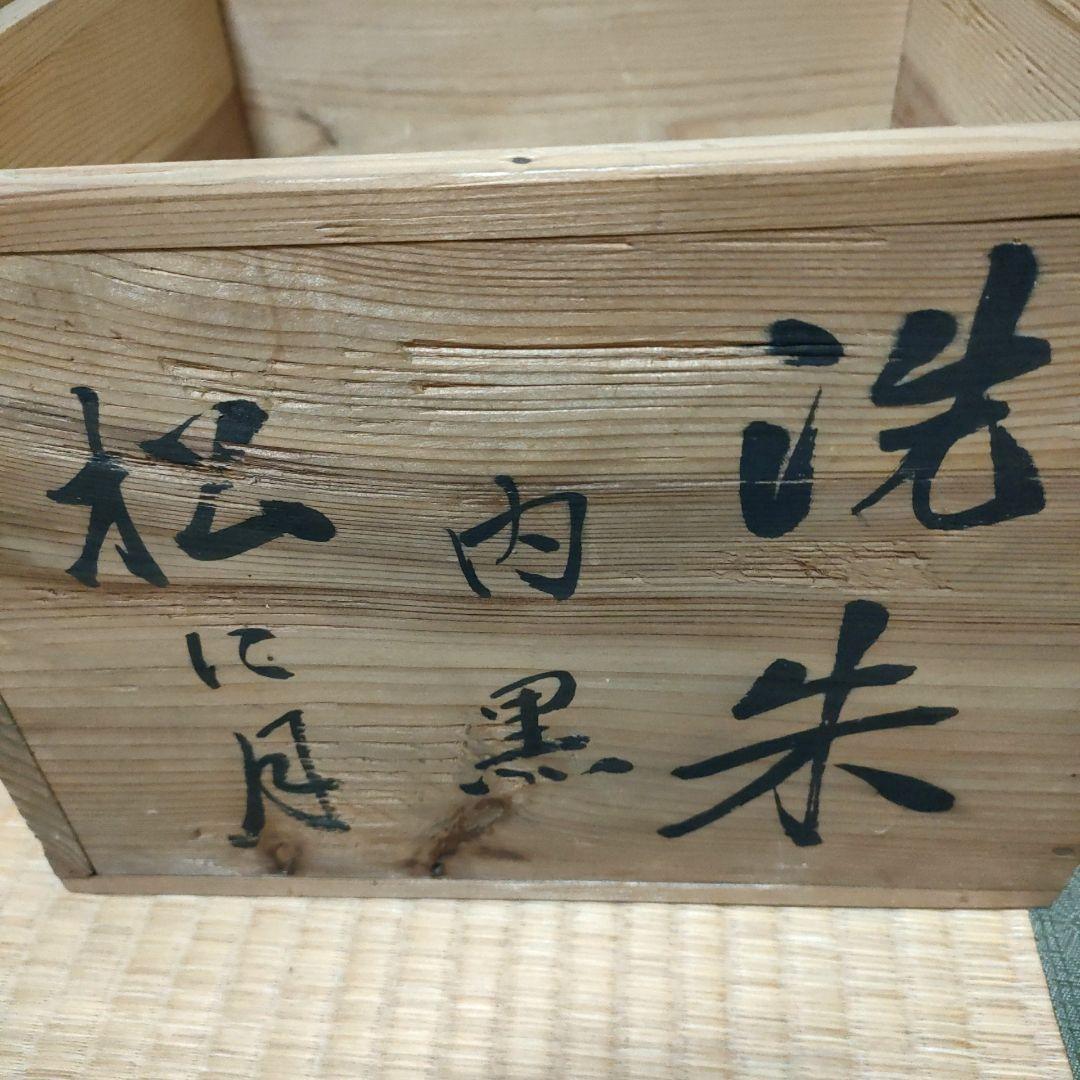 洗朱
内黒
松に月